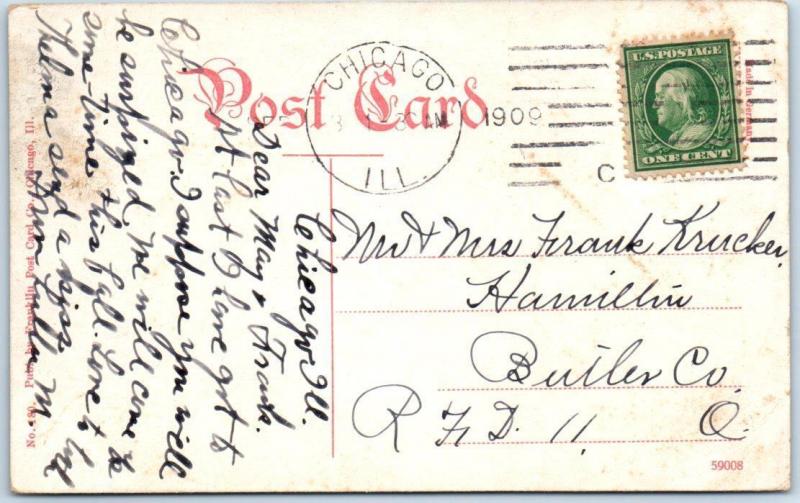 Post Card
CHICAGO
ILL.
1909
U.S. POSTAGE
ONE CENT
Made in Germany
Chicago Ill.
Dear May & Frank.
At last I have got to
Chicago. I suppose you will
be surprized. We will come
some-time this fall. Love to
Thelma send a kiss
Mr & Mrs Frank Krucker,
Hamilton
Butler Co.
R F D. 11 O.
No. 180. Pub. by Franklin Post Card Co., Chicago, Ill.
59008